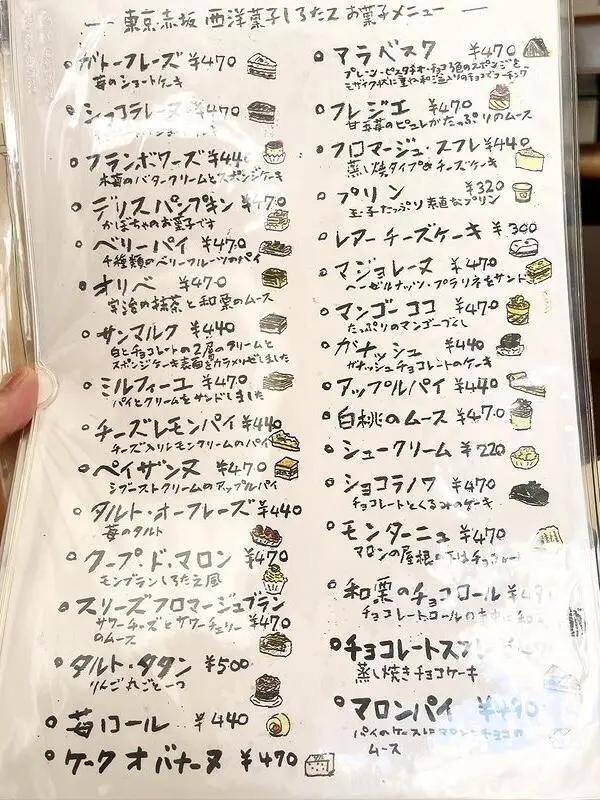 東京赤坂 西洋菓子しろたえ お菓子メニュー
ガトーフレーズ ¥470
苺のショートケーキ
ショコラレーヌ ¥470
フランボワーズ ¥440
木苺のバタークリームとスポンジケーキ
デリスパンプキン ¥470
かぼちゃのお菓子です
ベリーパイ ¥470
千種類のベリーフルーツのパイ
オリベ ¥470
宇治の抹茶と和栗のムース
サンマルク ¥440
白とチョコレートの2層のクリームと
スポンジケーキ表面をカラメリゼしました
ミルフィーユ ¥470
パイとクリームをサンドしました
チーズレモンパイ ¥440
チーズ入りレモンクリームのパイ
ペイザンヌ ¥470
シブーストクリームのアップルパイ
タルト・オーフレーズ ¥440
苺のタルト
クープ・ド・マロン ¥470
モンブランしろたえ風
スリーズフロマージュブラン
サワーチーズとサワーチェリー ¥470
のムース
タルト・タタン ¥500
りんご丸ごと一つ
苺ロール ¥440
ケークオバナーヌ ¥470
マラベスク ¥470
プレーン・ピスタチオ・チョコ3色のスポンジを
モザイク状に重ね和三盆入りのチョコでコーチング
フレジエ ¥470
甘王苺のピュレがたっぷりのムース
フロマージュ・スフレ ¥440
蒸し焼タイプのチーズケーキ
プリン ¥320
玉子たっぷり素直なプリン
レアーチーズケーキ ¥300
マジョレーヌ ¥470
ヘーゼルナッツ・プラリネをサンド
マンゴーココ ¥470
たっぷりのマンゴーづくし
ガナッシュ ¥440
ガナッシュチョコレートのケーキ
アップルパイ ¥440
白桃のムース ¥470
シュークリーム ¥220
ショコラノワ ¥470
チョコレートとくるみのケーキ
モンターニュ ¥470
マロンの屋根の下はチョコ
和栗のチョコロール
チョコレートロールの真中に和栗
チョコレートスフレ
蒸し焼きチョコケーキ
マロンパイ ¥490
パイのケースにマロンとチョコの
ムース